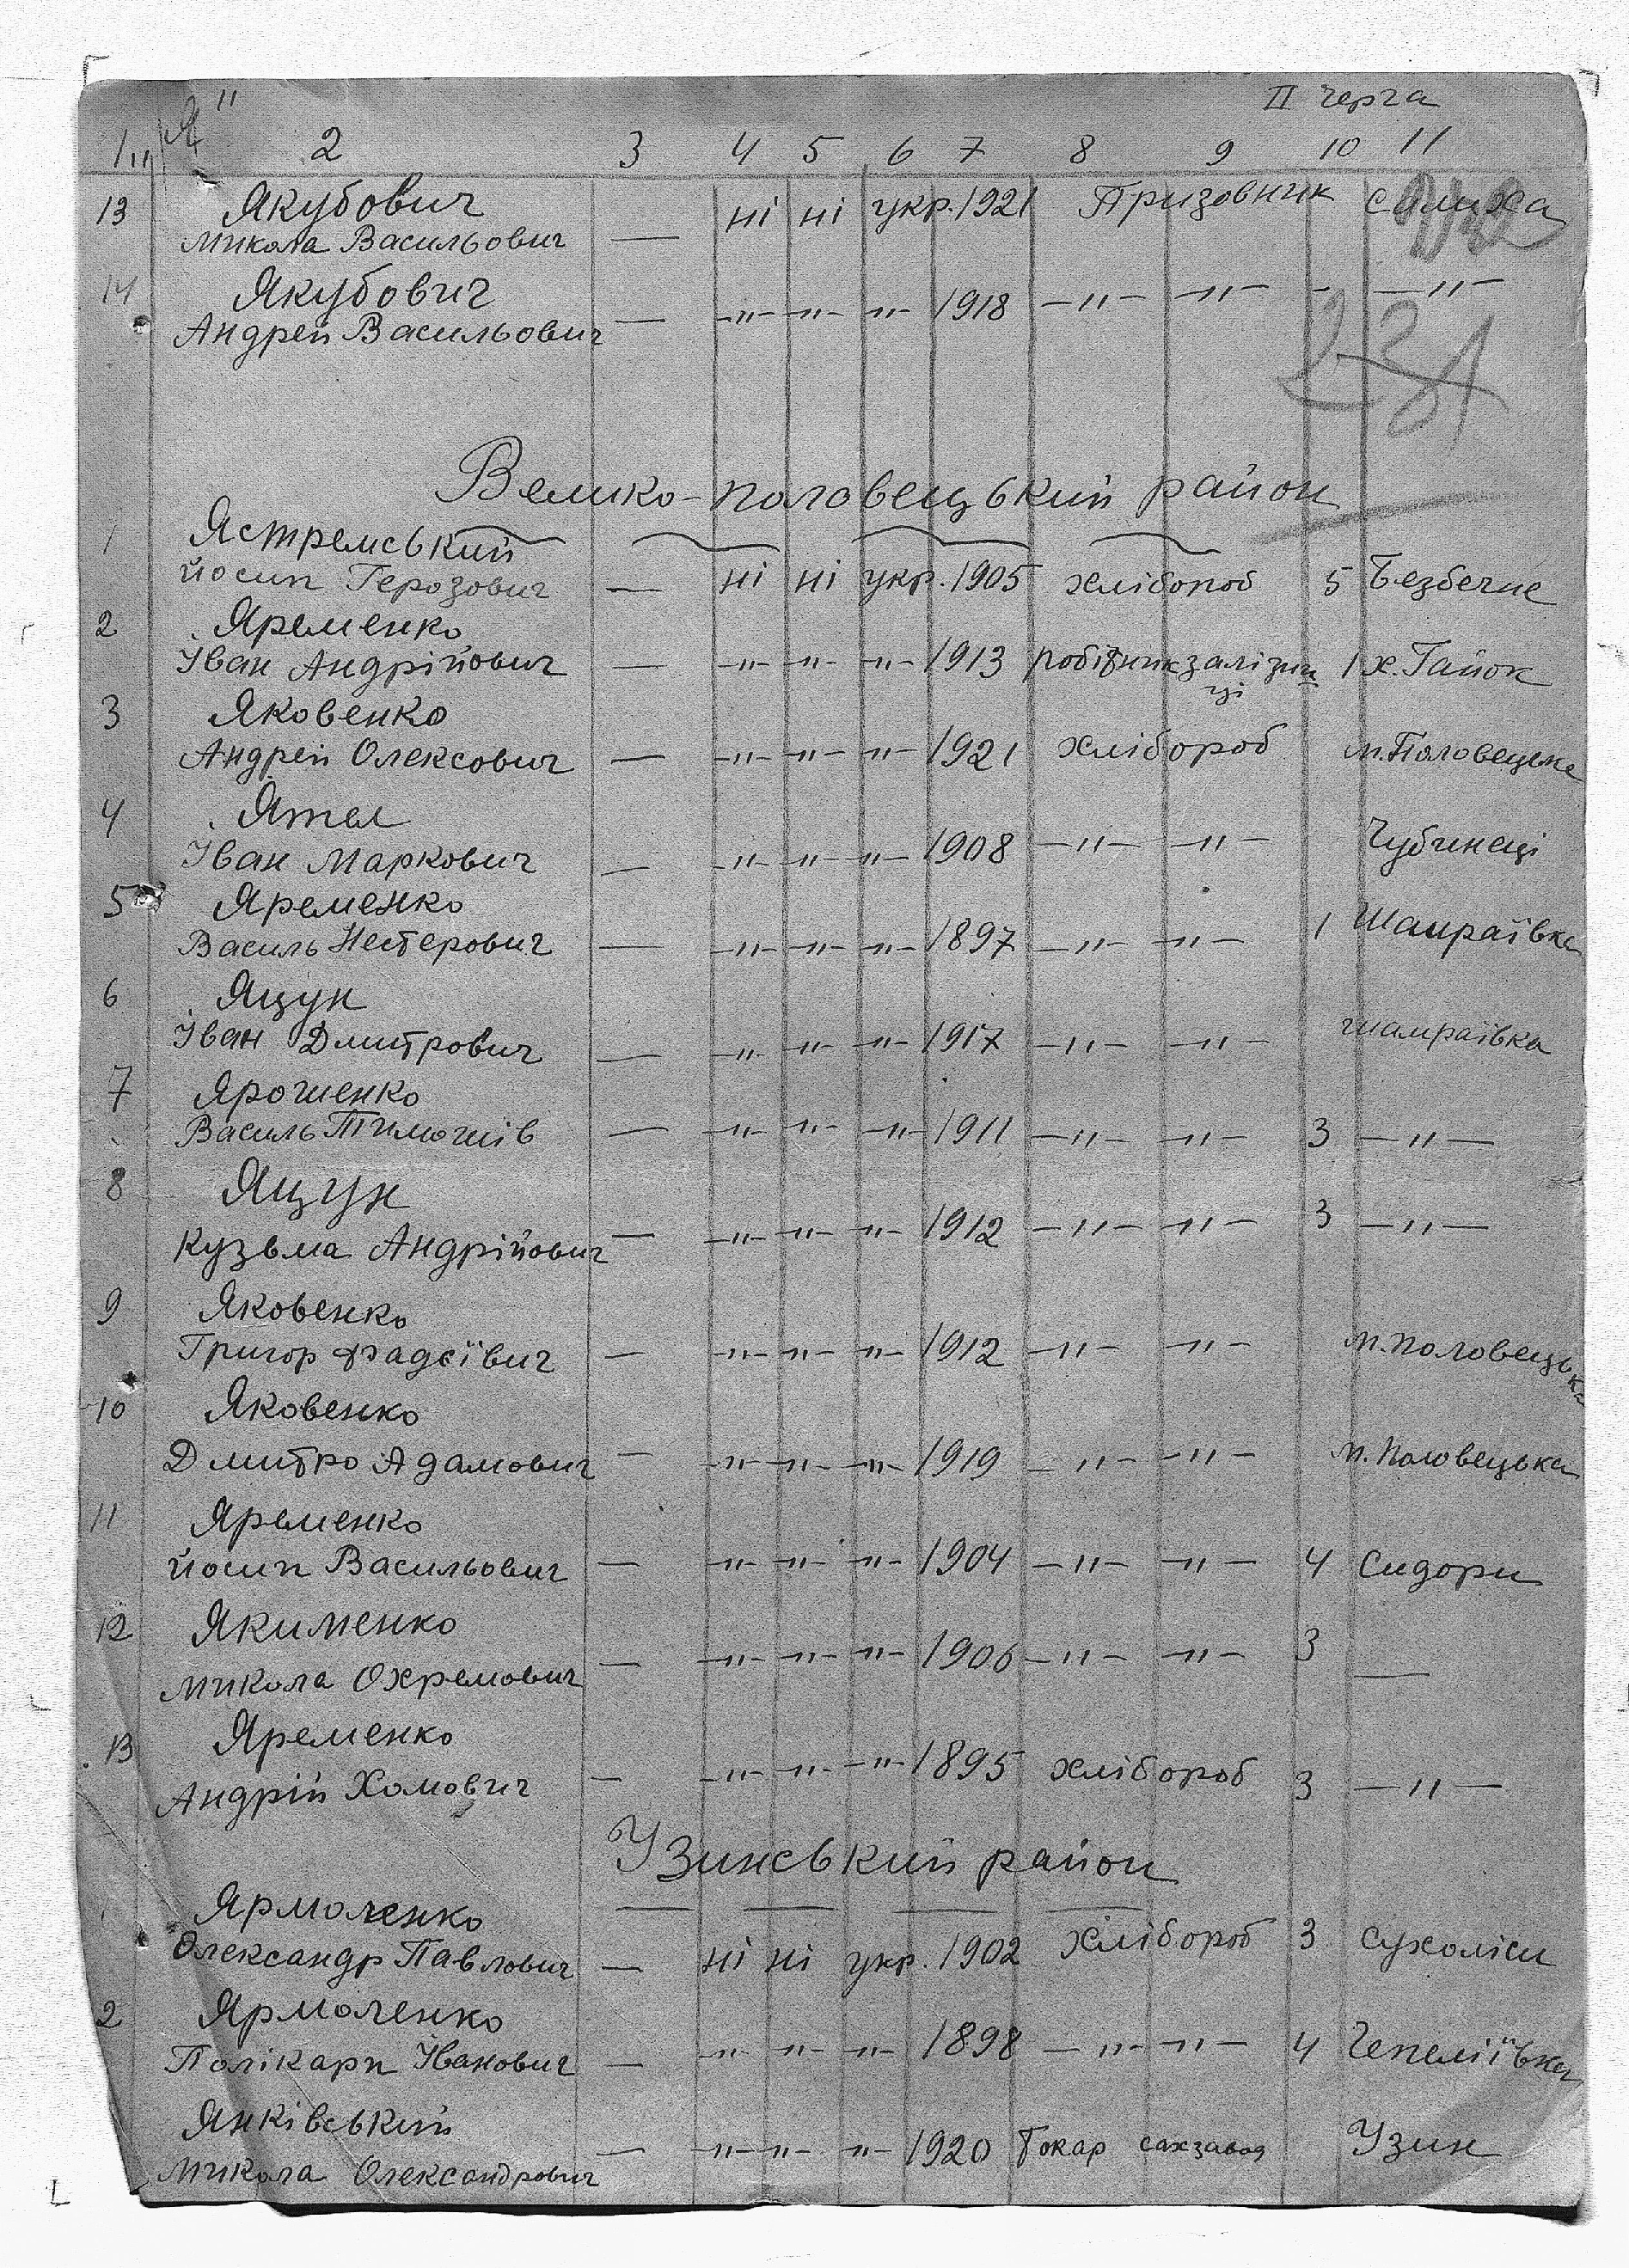 „Я" II черга
1 2 3 4 5 6 7 8 9 10 11
13 Якубович
Микола Васильович — ні ні укр. 1921 Призовник
14 Якубович
Андрей Васильович — —"— —"— —"— 1918 —"— —"— - —"—
Велико-половецький район
1 Ястремський
Йосип Герозович — ні ні укр. 1905 хлібороб 5 Безбечне
2 Яременко
Іван Андрійович — —"— —"— —"— 1913 робітник залізни 1 х. Гайок
ці
3 Яковенко
Андрей Олексович — —"— —"— —"— 1921 хлібороб м. Половецьке
4 Ятел
Іван Маркович — —"— —"— —"— 1908 —"— —"— Чубинеці
5 Яременко
Василь Нестерович — —"— —"— —"— 1897 —"— —"— 1 Шамраївка
6 Яцун
Іван Дмитрович — —"— —"— —"— 1917 —"— —"— Шамраївка
7 Ярошенко
Василь Тимошів — —"— —"— —"— 1911 —"— —"— 3 —"—
8 Яцун
Кузьма Андрійович — —"— —"— —"— 1912 —"— —"— 3 —"—
9 Яковенко
Григор Фадєївич — —"— —"— —"— 1912 —"— —"— м. Половецька
10 Яковенко
Дмитро Адамович — —"— —"— —"— 1919 —"— —"— м. Половецька
11 Яременко
Йосип Васильович — —"— —"— —"— 1904 —"— —"— 4 Сидори
12 Якименко
Микола Охремович — —"— —"— —"— 1906 —"— —"— 3 —
13 Яременко
Андрій Хомович — —"— —"— —"— 1895 хлібороб 3 —"—
Узинський район
Ярмоленко
Олександр Павлович — ні ні укр. 1902 хлібороб 3 Сухоліси
2 Ярмоленко
Полікарп Іванович — —"— —"— —"— 1898 —"— —"— 4 Чепеліївка
Янківський
Микола Олександрович — —"— —"— —"— 1920 токар сахзавод Узин